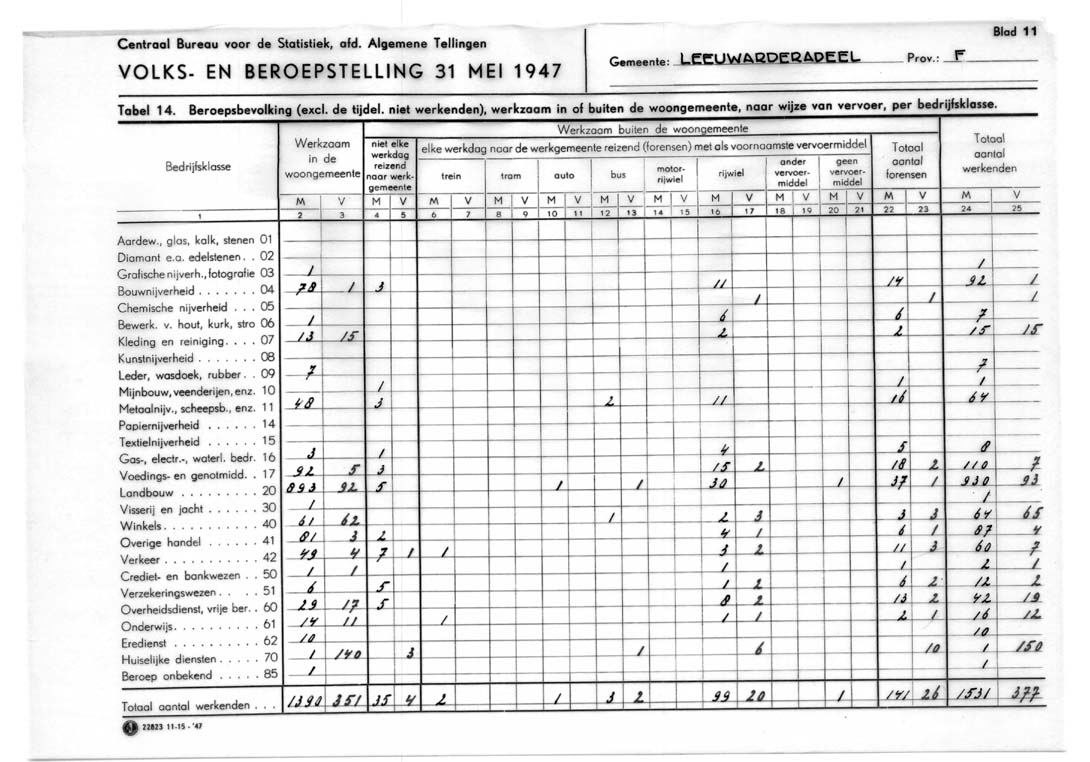 Blad 11
Centraal Bureau voor de Statistiek, afd. Algemene Tellingen
VOLKS- EN BEROEPSTELLING 31 MEI 1947
Gemeente: LEEUWARDERADEEL Prov.: F
Tabel 14. Beroepsbevolking (excl. de tijdel. niet werkenden), werkzaam in of buiten de woongemeente, naar wijze van vervoer, per bedrijfsklasse.
Bedrijfsklasse
Werkzaam in de woongemeente
Werkzaam buiten de woongemeente
niet elke werkdag reizend naar werk-gemeente
elke werkdag naar de werkgemeente reizend (forensen) met als voornaamste vervoermiddel
trein tram auto bus motor-rijwiel rijwiel ander vervoer-middel geen vervoer-middel
Totaal aantal forensen
Totaal aantal werkenden
M V M V M V M V M V M V M V M V M V M V M V M V
1 2 3 4 5 6 7 8 9 10 11 12 13 14 15 16 17 18 19 20 21 22 23 24 25
Aardew., glas, kalk, stenen 01
Diamant e.a. edelstenen . . 02
Grafische nijverh., fotografie 03 1 1
Bouwnijverheid . . . . . . . 04 78 1 3 11 14 92 1
Chemische nijverheid . . . 05 1 1 1
Bewerk. v. hout, kurk, stro 06 1 6 6 7
Kleding en reiniging. . . . 07 13 15 2 2 15 15
Kunstnijverheid . . . . . . . 08
Leder, wasdoek, rubber . . 09 7 7
Mijnbouw, veenderijen, enz. 10 1 1 1
Metaalnijv., scheepsb., enz. 11 48 3 2 11 16 64
Papiernijverheid . . . . . . 14
Textielnijverheid . . . . . . 15
Gas-, electr.-, waterl. bedr. 16 3 1 4 5 8
Voedings- en genotmidd. . 17 92 5 3 15 2 18 2 110 7
Landbouw . . . . . . . . . 20 893 92 5 1 1 30 1 37 1 930 93
Visserij en jacht . . . . . . 30 1 1
Winkels . . . . . . . . . . . 40 61 62 1 2 3 3 3 64 65
Overige handel . . . . . . 41 81 3 2 4 1 6 1 87 4
Verkeer . . . . . . . . . . 42 49 4 7 1 1 3 2 11 3 60 7
Crediet- en bankwezen . . 50 1 1 1 1 2 1
Verzekeringswezen . . . . 51 6 5 1 2 6 2 12 2
Overheidsdienst, vrije ber. . 60 29 17 5 8 2 13 2 42 19
Onderwijs. . . . . . . . . . 61 14 11 1 1 1 2 1 16 12
Eredienst . . . . . . . . . 62 10 10
Huiselijke diensten . . . . . 70 1 140 3 1 6 10 1 150
Beroep onbekend . . . . . 85 1 1
Totaal aantal werkenden . . . 1390 351 35 4 2 1 3 2 99 20 1 141 26 1531 377
22823 11-15 - '47